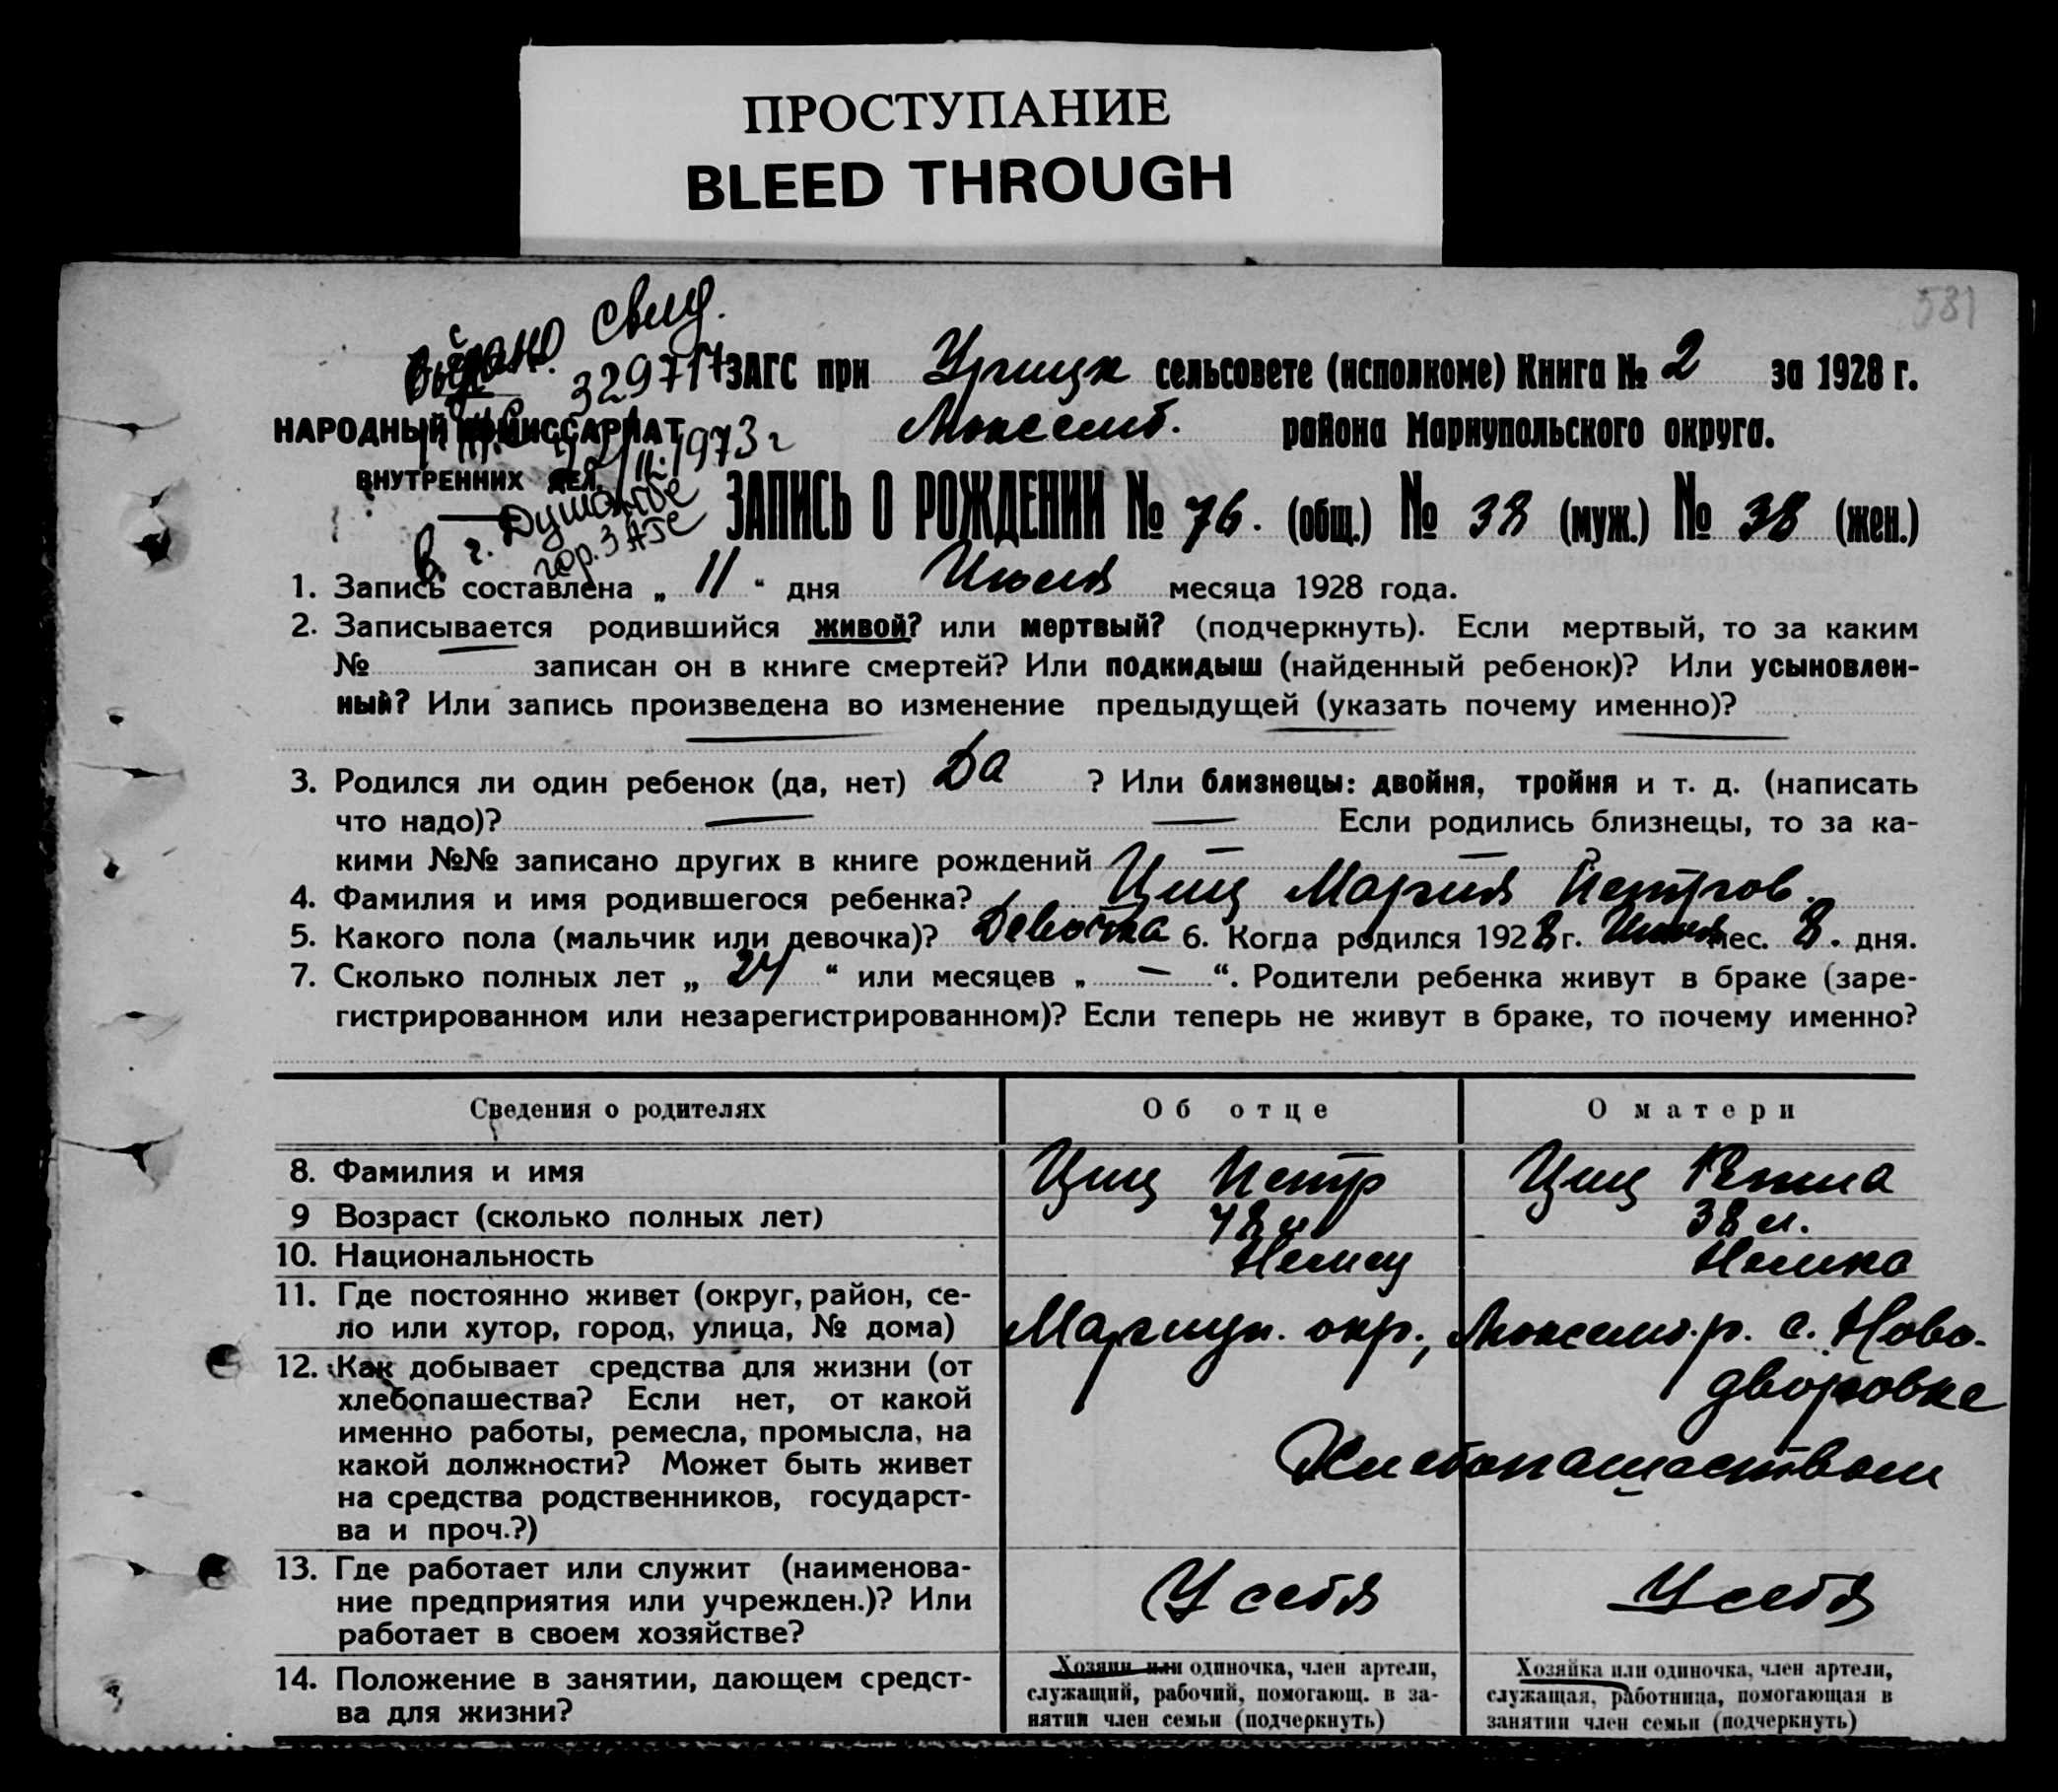 ПРОСТУПАНИЕ
BLEED THROUGH
531
Выдано свид.
329717
1973 г
в г. Душанбе
гор. ЗАГС
ЗАГС при Урицк сельсовете (исполкоме) Книга № 2 за 1928 г.
НАРОДНЫЙ КОМИССАРИАТ Люксемб. района Мариупольского округа.
ВНУТРЕННИХ ДЕЛ.
ЗАПИСЬ О РОЖДЕНИИ № 76. (общ.) № 38 (муж.) № 38 (жен.)
1. Запись составлена „ 11 “ дня Июля месяца 1928 года.
2. Записывается родившийся живой? или мертвый? (подчеркнуть). Если мертвый, то за каким
№ записан он в книге смертей? Или подкидыш (найденный ребенок)? Или усыновлен-
ный? Или запись произведена во изменение предыдущей (указать почему именно)?
3. Родился ли один ребенок (да, нет) Да ? Или близнецы: двойня, тройня и т. д. (написать
что надо)? — — Если родились близнецы, то за ка-
кими №№ записано других в книге рождений — —
4. Фамилия и имя родившегося ребенка? Циц Мария Петров.
5. Какого пола (мальчик или девочка)? Девочка 6. Когда родился 1928 г. мес. 8. дня.
7. Сколько полных лет „ 24 “ или месяцев „ — “. Родители ребенка живут в браке (заре-
гистрированном или незарегистрированном)? Если теперь не живут в браке, то почему именно?
Сведения о родителях Об отце О матери
8. Фамилия и имя Циц Петр Циц
9 Возраст (сколько полных лет) 48 л 38 л.
10. Национальность Немец Немка
11. Где постоянно живет (округ, район, се-
ло или хутор, город, улица, № дома) Мариуп. окр., Люксемб. р. с. Ново-
дворовке
12. Как добывает средства для жизни (от
хлебопашества? Если нет, от какой
именно работы, ремесла, промысла, на
какой должности? Может быть живет
на средства родственников, государст-
ва и проч.?)
Хлебопашеством
13. Где работает или служит (наименова-
ние предприятия или учрежден.)? Или
работает в своем хозяйстве?
У себя У себя
14. Положение в занятии, дающем средст-
ва для жизни?
Хозяин или одиночка, член артели,
служащий, рабочий, помогающ. в за-
нятии член семьи (подчеркнуть)
Хозяйка или одиночка, член артели,
служащая, работница, помогающая в
занятии член семьи (подчеркнуть)